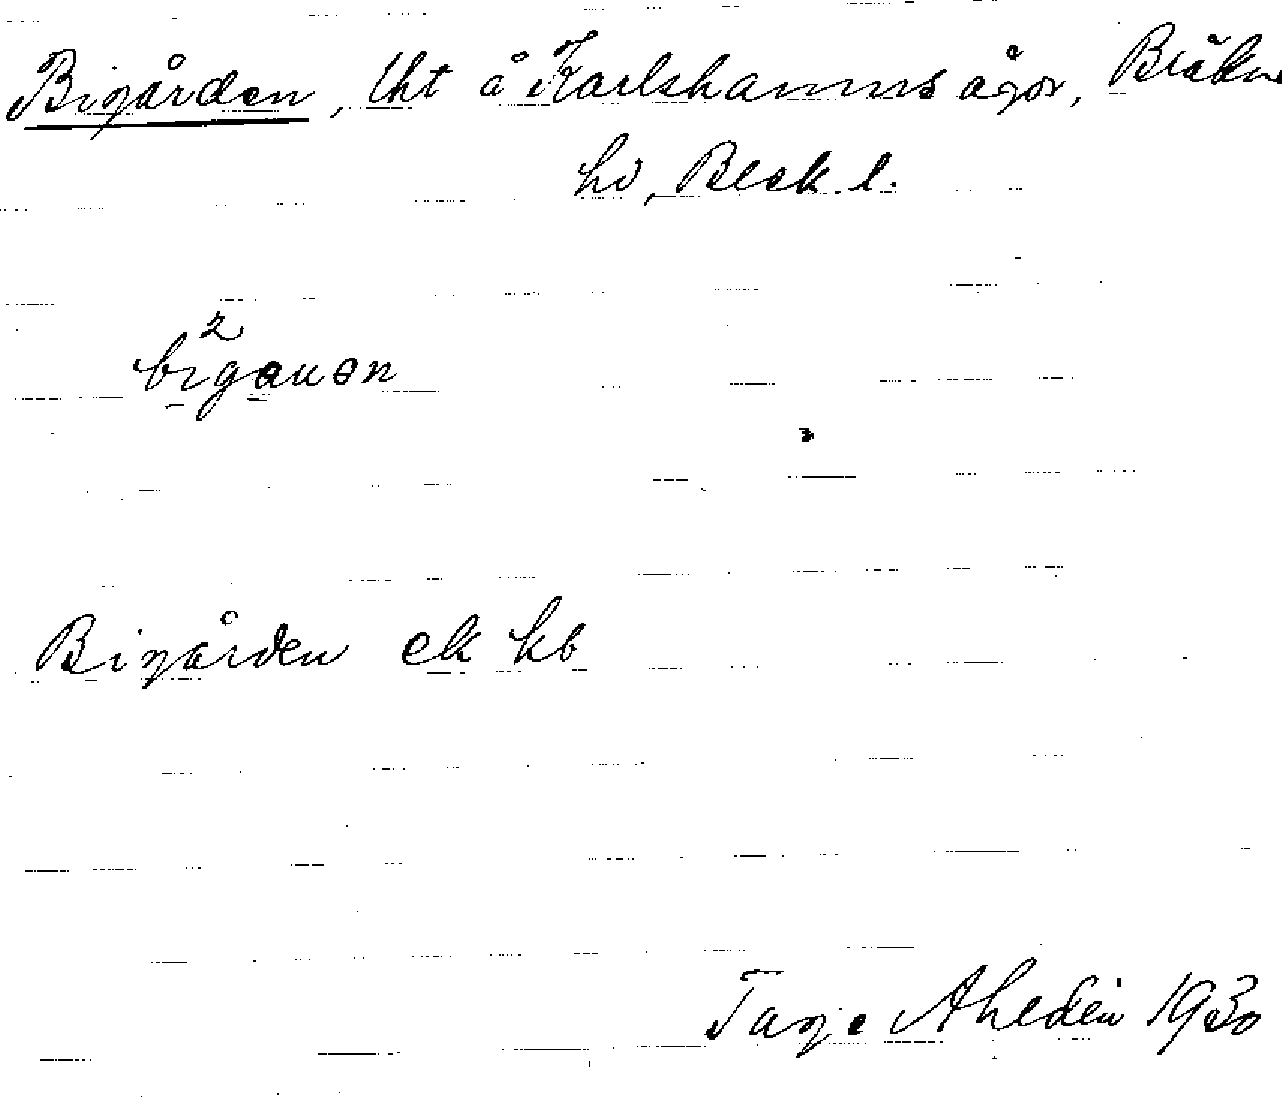 Bigården, lht å Karlshamns ägor, Bräkne
hd, Blek. l.
2
bigauən
Bigården ek kb
Tage Ahldén 1930